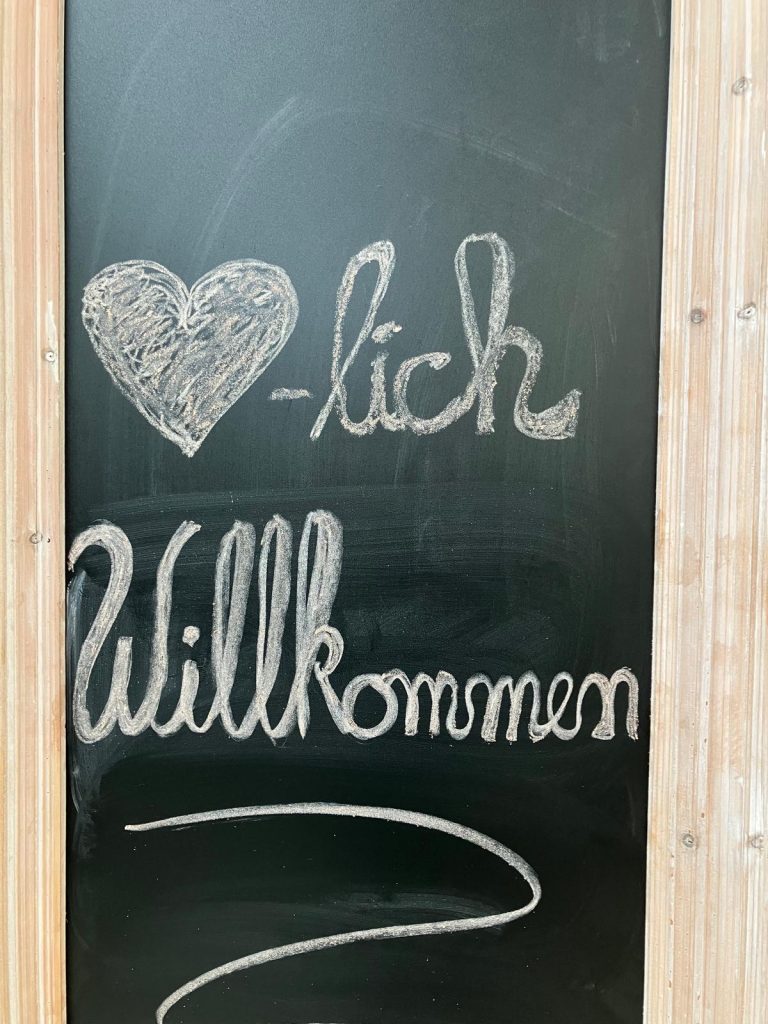 ♥-lich
Willkommen